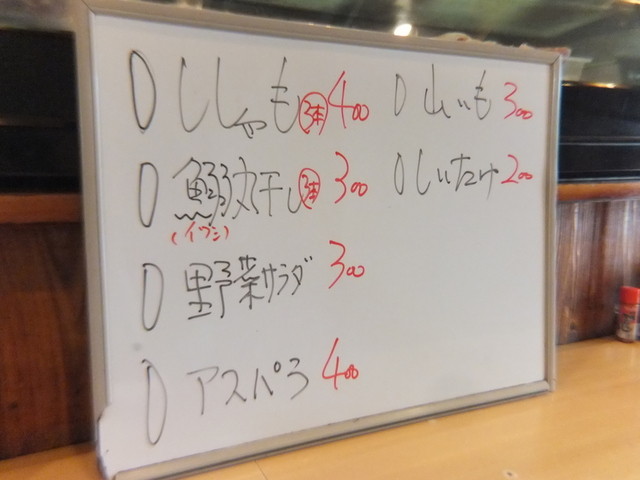 ししゃも 3本 400
鰯丸干し 3本 300
(イワシ)
野菜サラダ 300
アスパラ 400
山いも 300
しいたけ 200